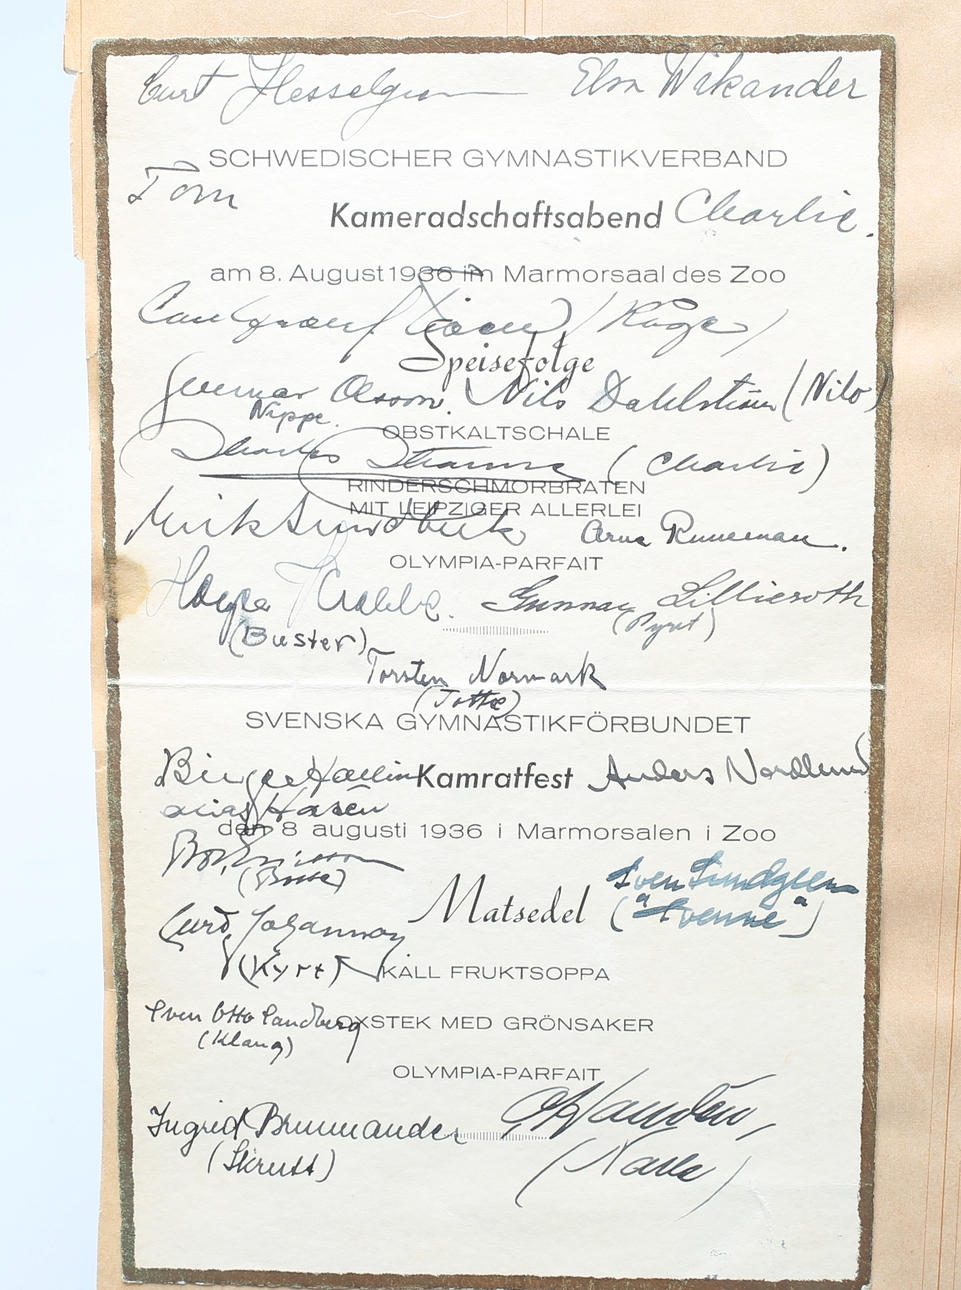 Curt Hesselgren Elsa Wikander
SCHWEDISCHER GYMNASTIKVERBAND
Tom
Kameradschaftsabend Charlie.
am 8. August 1936 im Marmorsaal des Zoo
(Kåge)
Speisefolge
Gunnar Olsson. Nils Dahlström (Nilo)
Nippe.
OBSTKALTSCHALE
Charles (Charlie)
RINDERSCHMORBRATEN
MIT LEIPZIGER ALLERLEI
Erik Sundbeck Arne Runeman.
OLYMPIA-PARFAIT
Krabbe. Gunnar Lillieroth
(Buster) (Pyret)
Torsten Normark
(Totte)
SVENSKA GYMNASTIKFÖRBUNDET
Birger Hallin Kamratfest Anders Nordlund
alias Hasen
den 8 augusti 1936 i Marmorsalen i Zoo
Ericsson
(Bosse) Sven Lundgren
Matsedel ("Svenne")
Curt Johansson
(Kyrt) KALL FRUKTSOPPA
Sven Otto Sandberg OXSTEK MED GRÖNSAKER
(Klang)
OLYMPIA-PARFAIT
Ingrid Brunnander
(Skrutt) (Nalle)